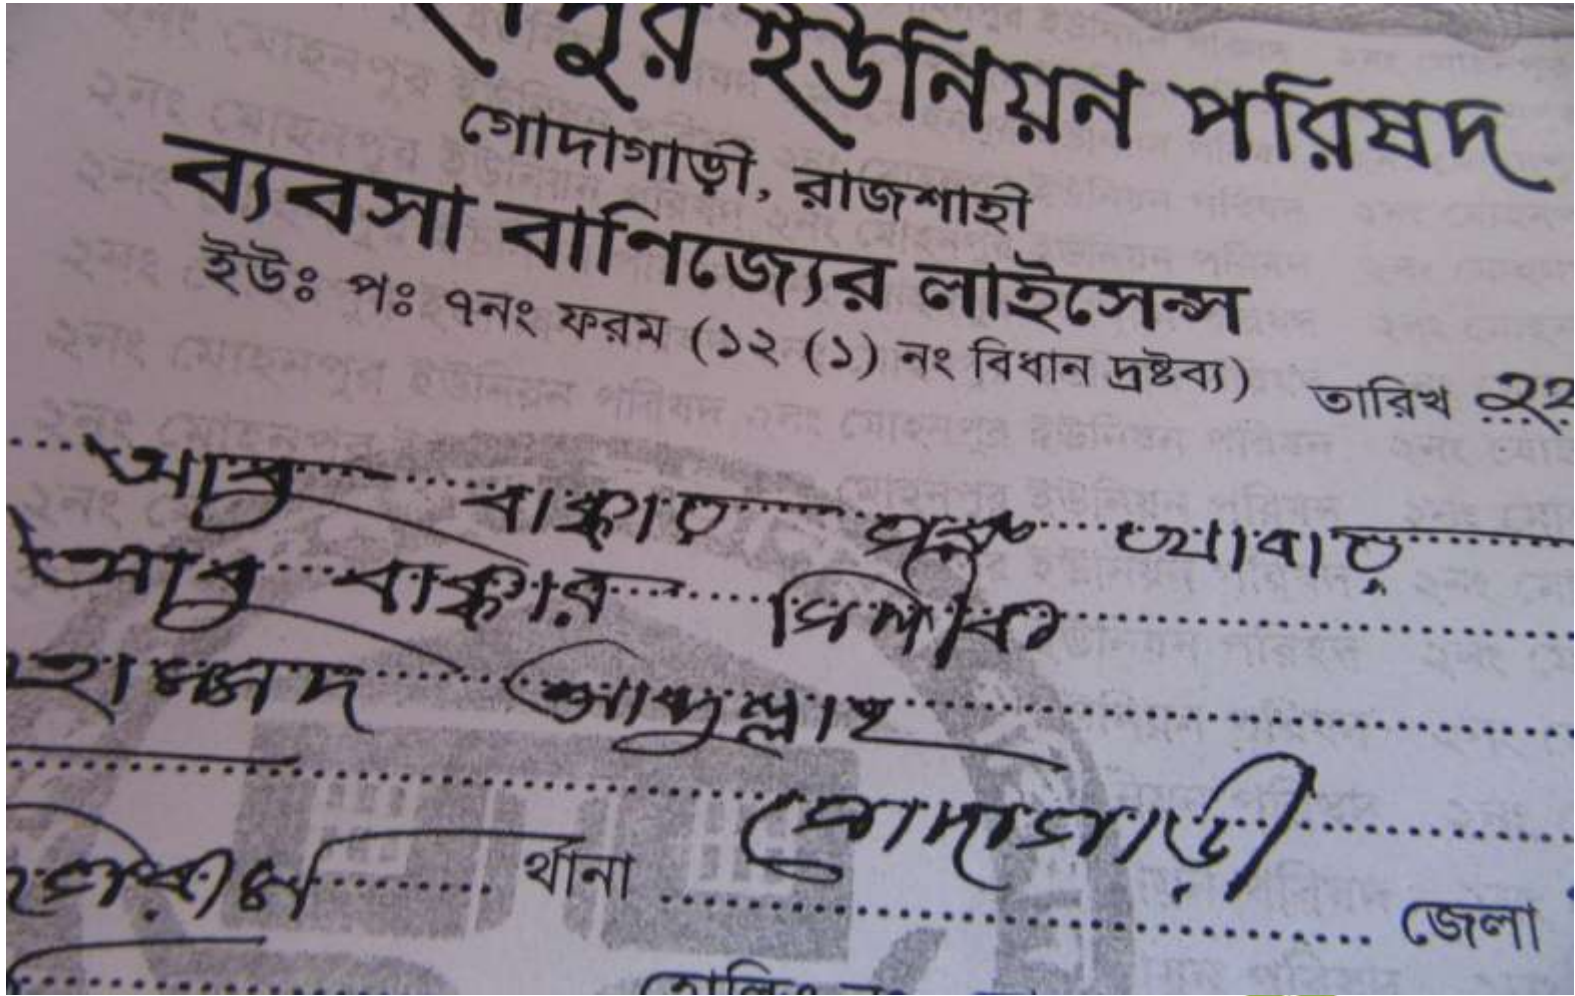 পুর ইউনিয়ন পরিষদ
গোদাগাড়ী, রাজশাহী
ব্যবসা বাণিজ্যের লাইসেন্স
ইউঃ পঃ ৭নং ফরম (১২ (১) নং বিধান দ্রষ্টব্য)
তারিখ ২২
আবু বাক্কার খাবার
আবু বাক্কার সিদ্দীক
হাম্মদ আব্দুল্লাহ
থানা গোদাগাড়ী জেলা